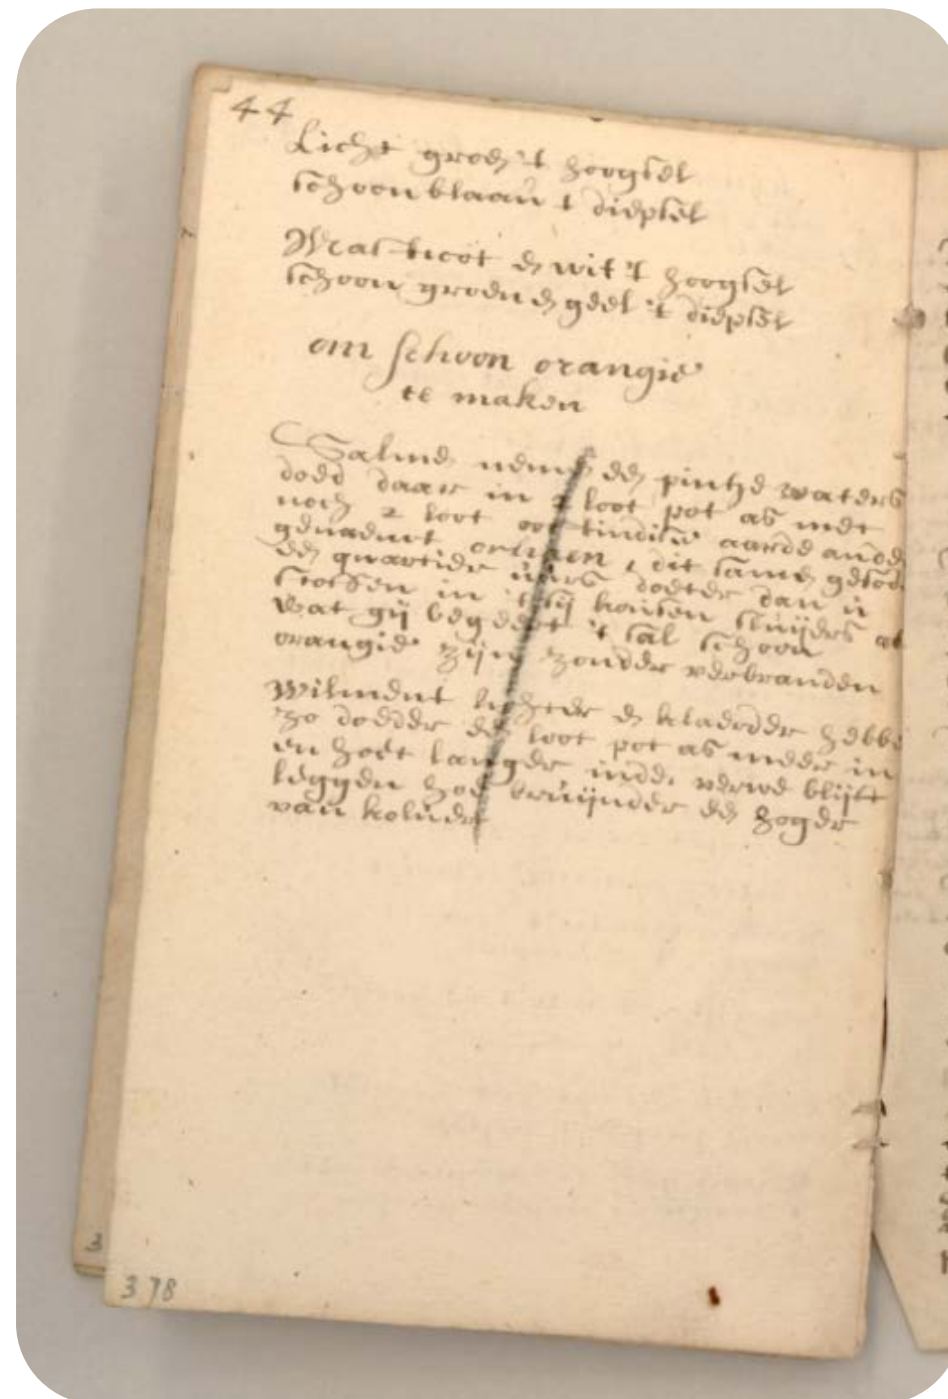 44
Licht groen 't hoogsel
schoon blaau 't diepsel
Masticot en wit 't hoogsel
schoon groen en geel 't diepsel
om schoon orangie
te maken
Salmen nemen een pintje waters
doed daar in 2 loot pot as met
noch 2 loot oostindise aarde ande
genaemt orliaen, dit samen
een quartier uurs doeter dan u
stoffen in 't sij kousen sluijers
wat gij begeert 't sal schoon
orangie zijn zonder verbranden
wilment lichter en klaerder hebbe
zo doedder een loot pot as meer in
en hoet langer inde verwe blijft
leggen hoe bruijnder en hoger
van koluer
3
378